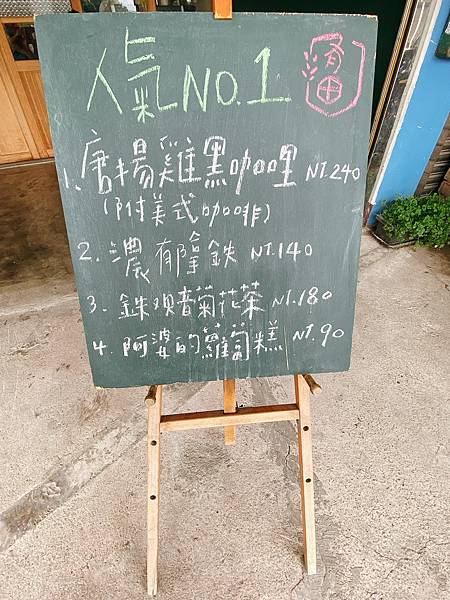 人氣NO.1
1. 唐揚雞黑咖哩 NT.240
(附美式咖啡)
2. 濃郁拿鉄 NT.140
3. 鉄观音菊花茶 NT.180
4. 阿婆的蘿蔔糕 NT.90